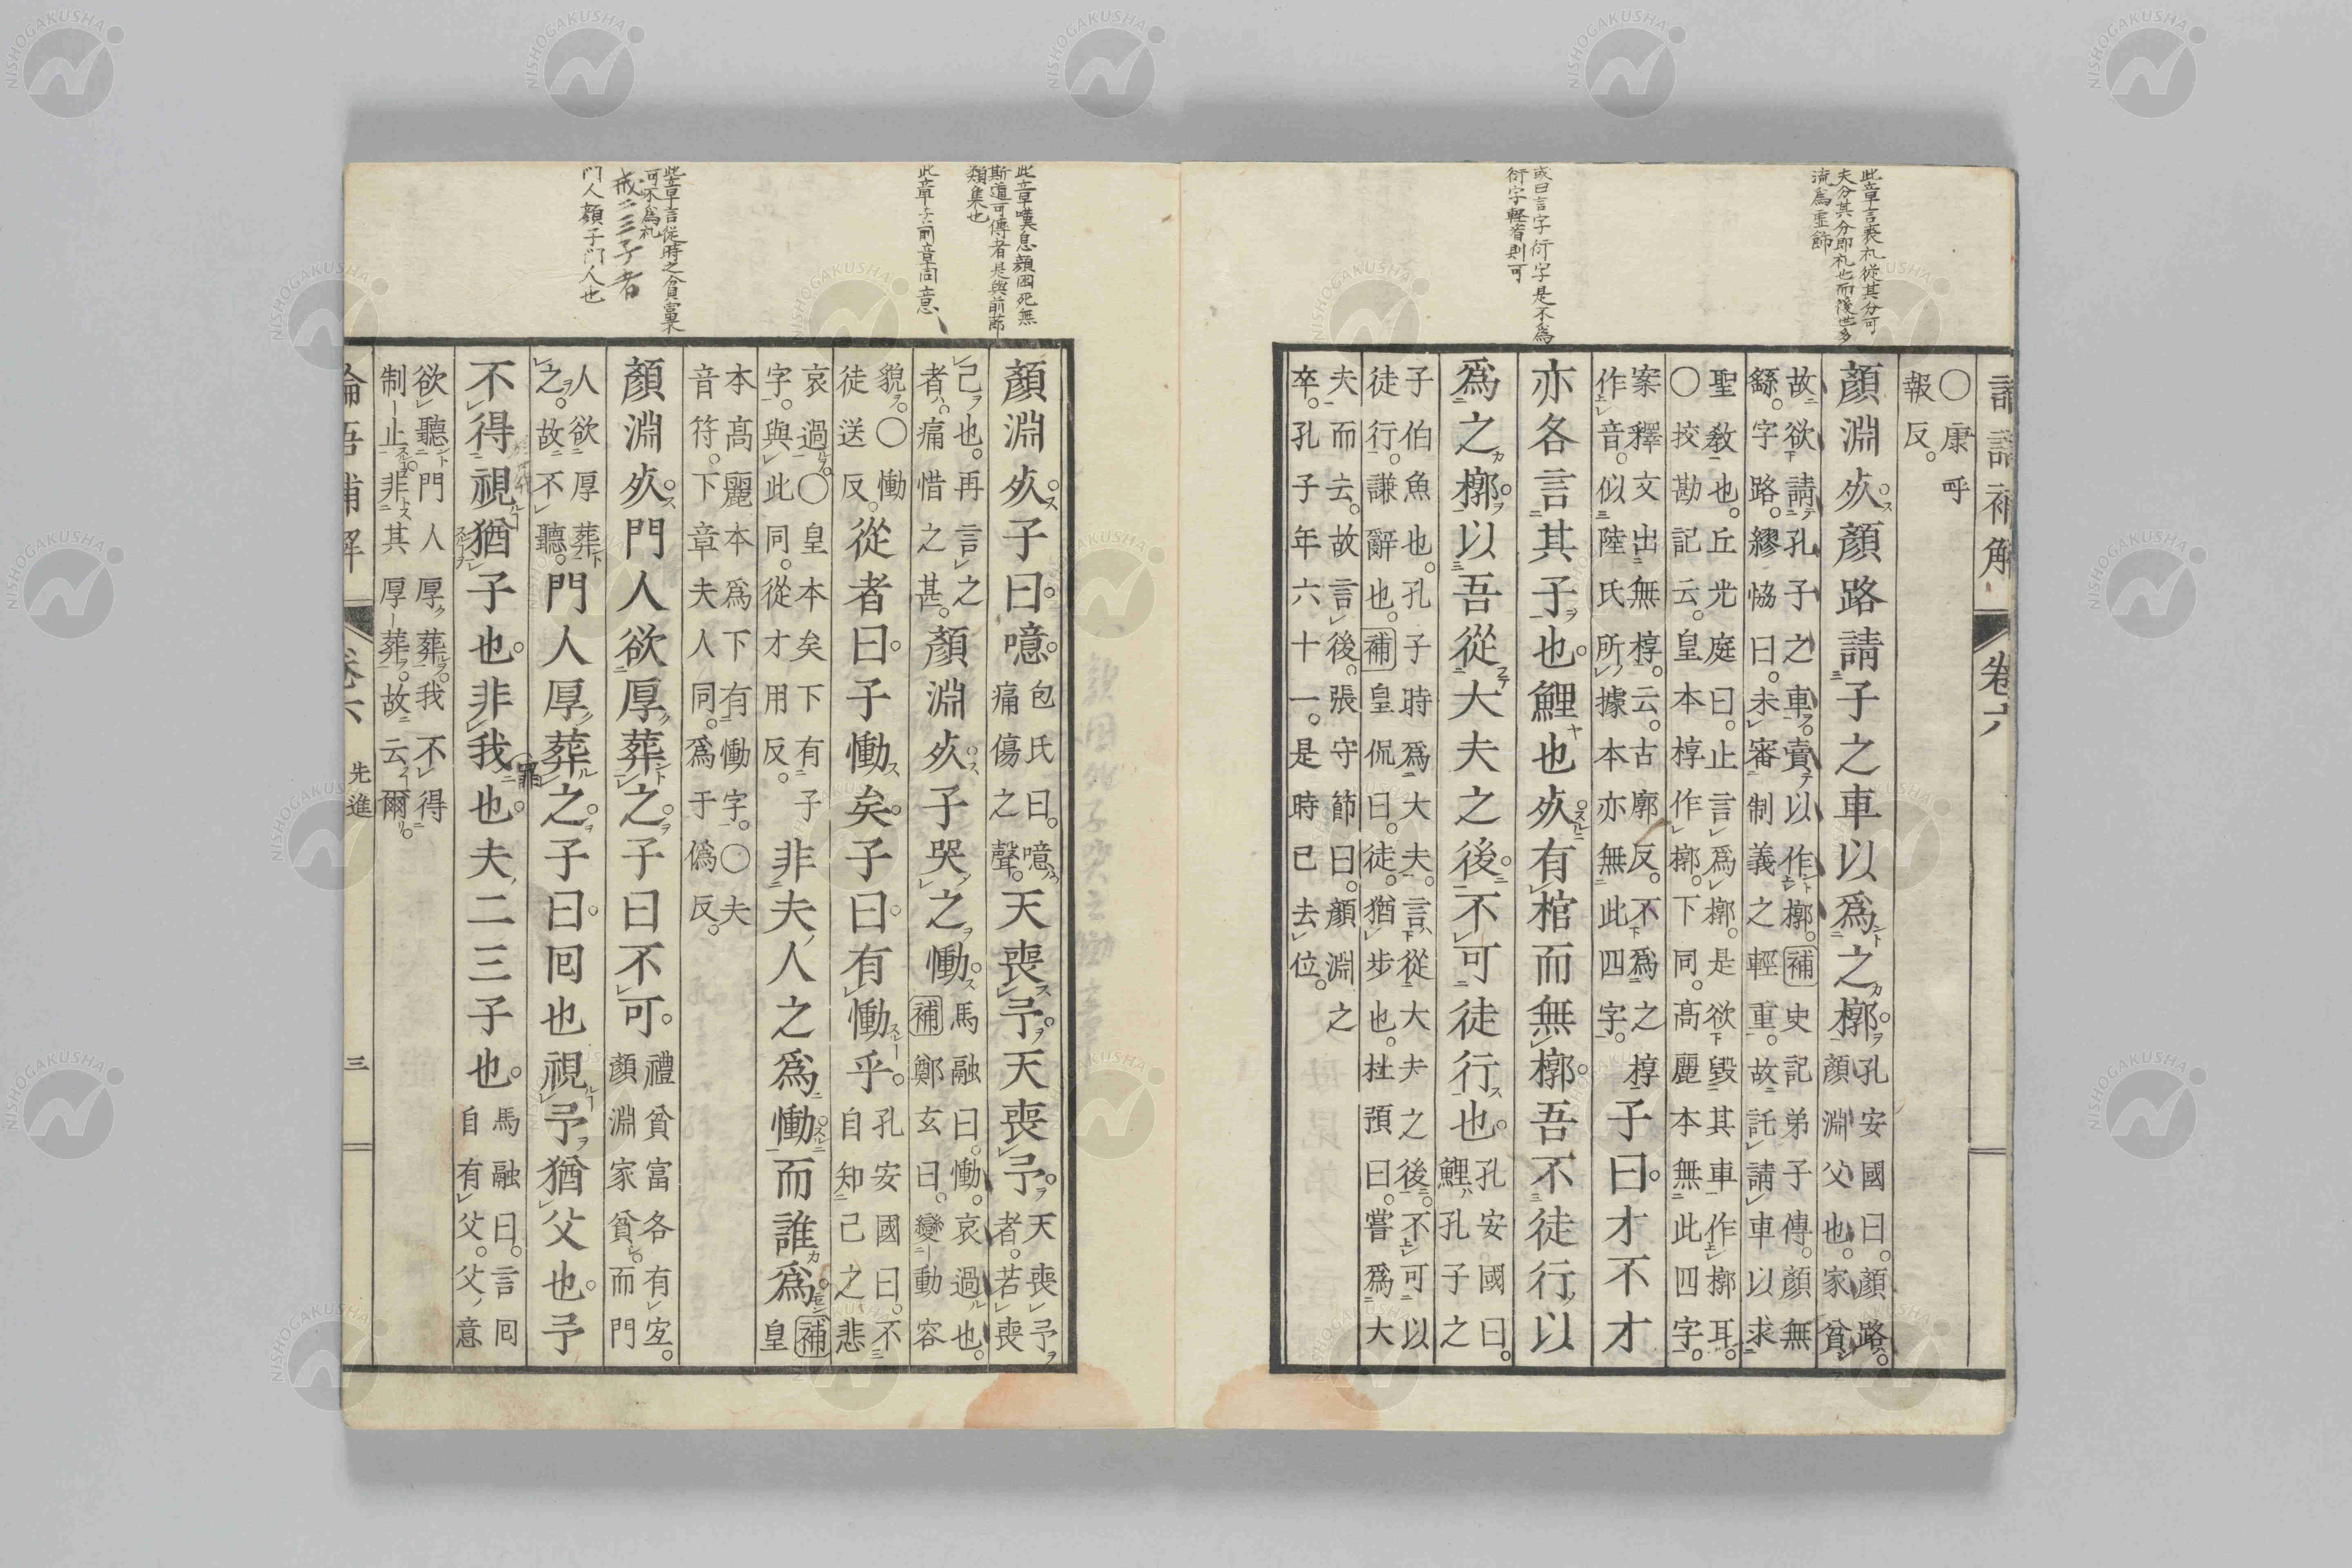 此章言喪礼從其分可
夫分其分即礼也而後世多
流為虛飾
或曰言字衍字是不為
衍字軽着則可
論語補解 卷六
〇康呼
報反。
顏淵死。顏路請子之車以爲之槨。
孔安國曰。顏路。
顏淵父也。家貧
故欲請孔子之車。賣以作槨。補史記弟子傳。顏無
繇。字路。繆恊曰。未審制義之輕重。故託請車以求
聖敎也。丘光庭曰。止言爲槨。是欲毀其車作槨耳。
〇挍勘記云。皇本椁作槨。下同。高麗本無此四字。
案釋文出無椁。云。古廓反。不爲之椁
作音。似陸氏所據本亦無此四字。
子曰。才不才
亦各言其子也。鯉也死。有棺而無槨。吾不徒行以
爲之槨。以吾從大夫之後。不可徒行也。
孔安國曰。
鯉孔子之
子伯魚也。孔子時爲大夫。言從大夫之後。不可以
徒行。謙辭也。補皇侃曰。徒。猶步也。杜預曰。嘗爲大
夫而去。故言後。張守節曰。顏淵之
卒。孔子年六十一。是時已去位。
此章嘆息顏囘死無
斯道可傳者是與前節
類集也
此章与前章同意
此章言從時之貧富果
可不為礼
戒二三子者
門人顏子門人也
顏淵死。子曰。噫。
包氏曰。噫。
痛傷之聲。
天喪予。天喪予。
天喪予
者。若喪
己也。再言之
者。痛惜之甚。
顏淵死。子哭之慟。
馬融曰。慟。哀過也。
補鄭玄曰。變動容
貌。〇慟
徒送反。
從者曰。子慟矣。子曰。有慟乎。
孔安國曰。不
自知己之悲
哀過〇皇本矣下有子
字。與此同。從才用反。
非夫人之爲慟而誰爲。
補
皇
本高麗本爲下有慟字。〇夫
音符。下章夫人同。爲于僞反。
顏淵死。門人欲厚葬之。子曰不可。
禮貧富各有宐。
顏淵家貧。而門
人欲厚葬
之。故不聽。
門人厚葬之。子曰。囘也視予猶父也。予
不得視猶子也。非我也。夫二三子也。
馬融曰。言囘
自有父。父意
欲聽門人厚葬。我不得
制止。非其厚葬。故云爾。
論吾補解 卷六 先進 三